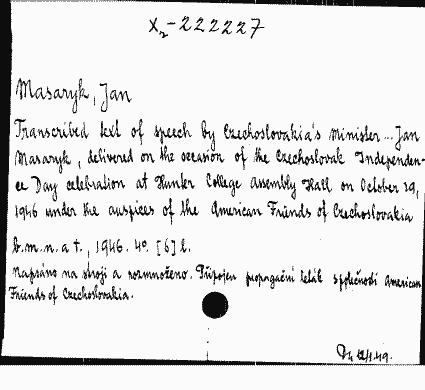 X2-222227
Masaryk, Jan
Transcribed text of speech by Czechoslovakia's Minister... Jan
Masaryk, delivered on the occasion of the Czechoslovak Independen-
ce Day celebration at Hunter College Assembly Hall on October 29,
1946 under the auspices of the American Friends of Czechoslovakia
b.m.n. a t., 1946. 4o. [6] l.
Napsáno na stroji a rozmnoženo. Připojen propagační leták společnosti American
Friends of Czechoslovakia.